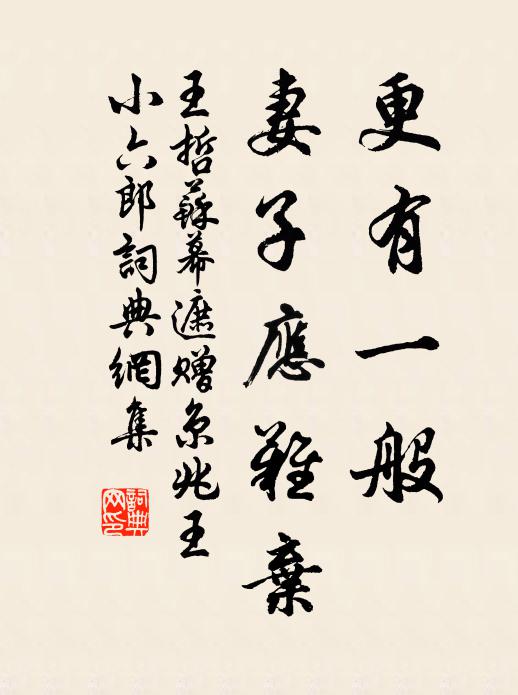 更有一般
妻子應難棄
王哲蘇幕遮贈京兆王
小六郎詞典網集
詞典网印